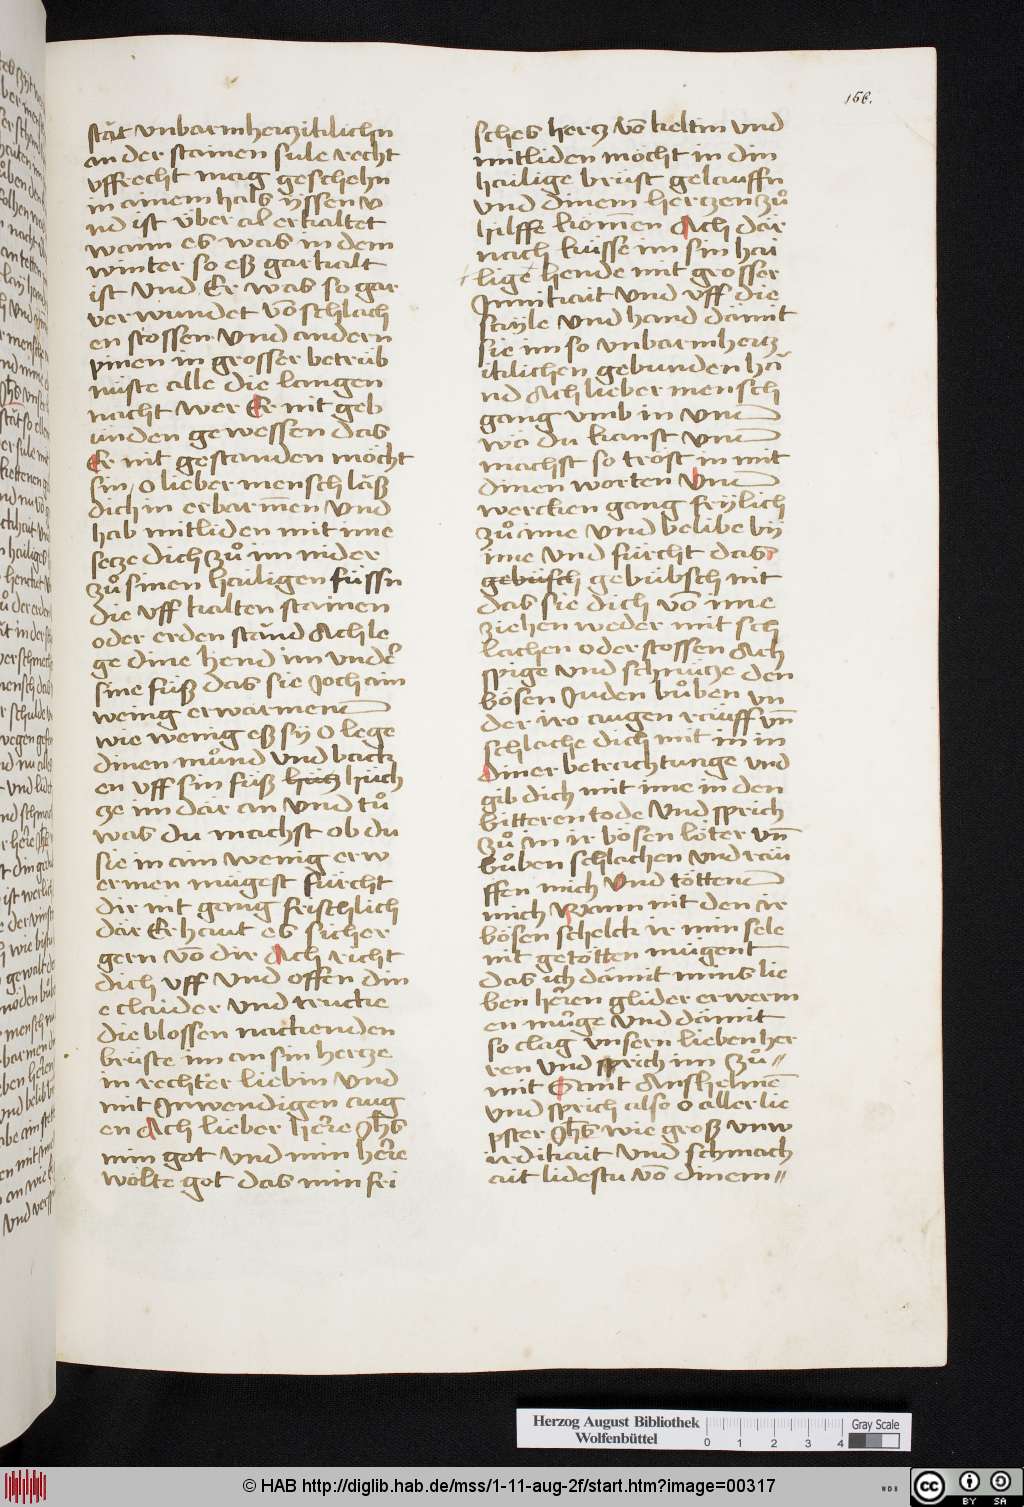 156.
stät vnbarmhertziklichn
an der stainen sule recht
vffrecht mag geschehn
in ainem hals ÿssen v
nd ist über al erkaltet
wann es was in dem
winter so eß gar kalt
ist vnd Er was so gar
verwundet vō schlach
en stossen vnd andern
pinen in grosser betrüb
nüste alle die langen
nacht wer Er nit geb
unden gewessen das
Er nit gestanden möcht
sin / o lieber mensch läß
dich in erbarmen vnd
hab mitliden mit ime
setze dich zů im nider
zů sinen hailigen füssn
die vff kalten stainen
oder erden stānd Ach le
ge dine hend im vnder
sine füß das sie Joch ain
wenig erwarmen
wie wenig eß sÿ O lege
dinen můnd vnd back
en vff sin füß hüch
ze im där an vnd tů
was du machst ob du
sie in ain wenig erw
ermen mügest fürcht
dir nit gang frischlich
där Er haut es sicher
gern vō dir Ach richt
dich vff vnd offen din
e claider vnd trucke
die blossen nackenden
brüste im an sin hertze
in rechter liebin vnd
mit Jnwendigen aug
en Ach lieber herre Jhs
min got vnd min herre
wölte got das min fri
sches hertz vō keltin vnd
mitliden möcht in din
hailige brüst gelauffn
vnd dinem hertzen zů
hilffe komen Ach där
nach küsse im sin hai
lige hende mit grosser
Jnnikait vnd vff die
saÿle vnd band dämit
sie im so vnbarmhertz
iklichen gebunden hā
nd Ach lieber mensch
gang vmb in vnd
wä du kanst vnd
machst so tröst in mit
dinen worten vnd
wercken gang frÿlich
zů ime vnd belibe bÿ
ime vnd fürcht das
gebüsch gebübsch nit
das sie dich vō ime
ziehen weder mit sch
lachen oder stossen Ach
spige vnd schmütze den
bösen Juden bůben vn
der iro augen räuff vn̄
schlache dich mit in in
diner betrachtunge vnd
gib dich mit ime in den
bitteren tode vnd sprich
zů in ir bösen löter vn̄
bůben schlachen vnd räu
ffen mich vnd tötten
mich Wann nit den ir
bösen schelck ir min sele
nit getötten mügent
das ich dämit mins lie
ben herren glider erwerm
en můge vnd dämit
so clag vnsern lieben her
ren vnd sprich im zů //
mit Sant Anshelmē
vnd sprich also o aller lie
pster Jhs wie groß vnw
irdikait vnd schmach
ait lidestu vō dinem //
Herzog August Bibliothek
Wolfenbüttel
0 1 2 3 4
Gray Scale
© HAB http://diglib.hab.de/mss/1-11-aug-2f/start.htm?image=00317
WDB
CC BY SA